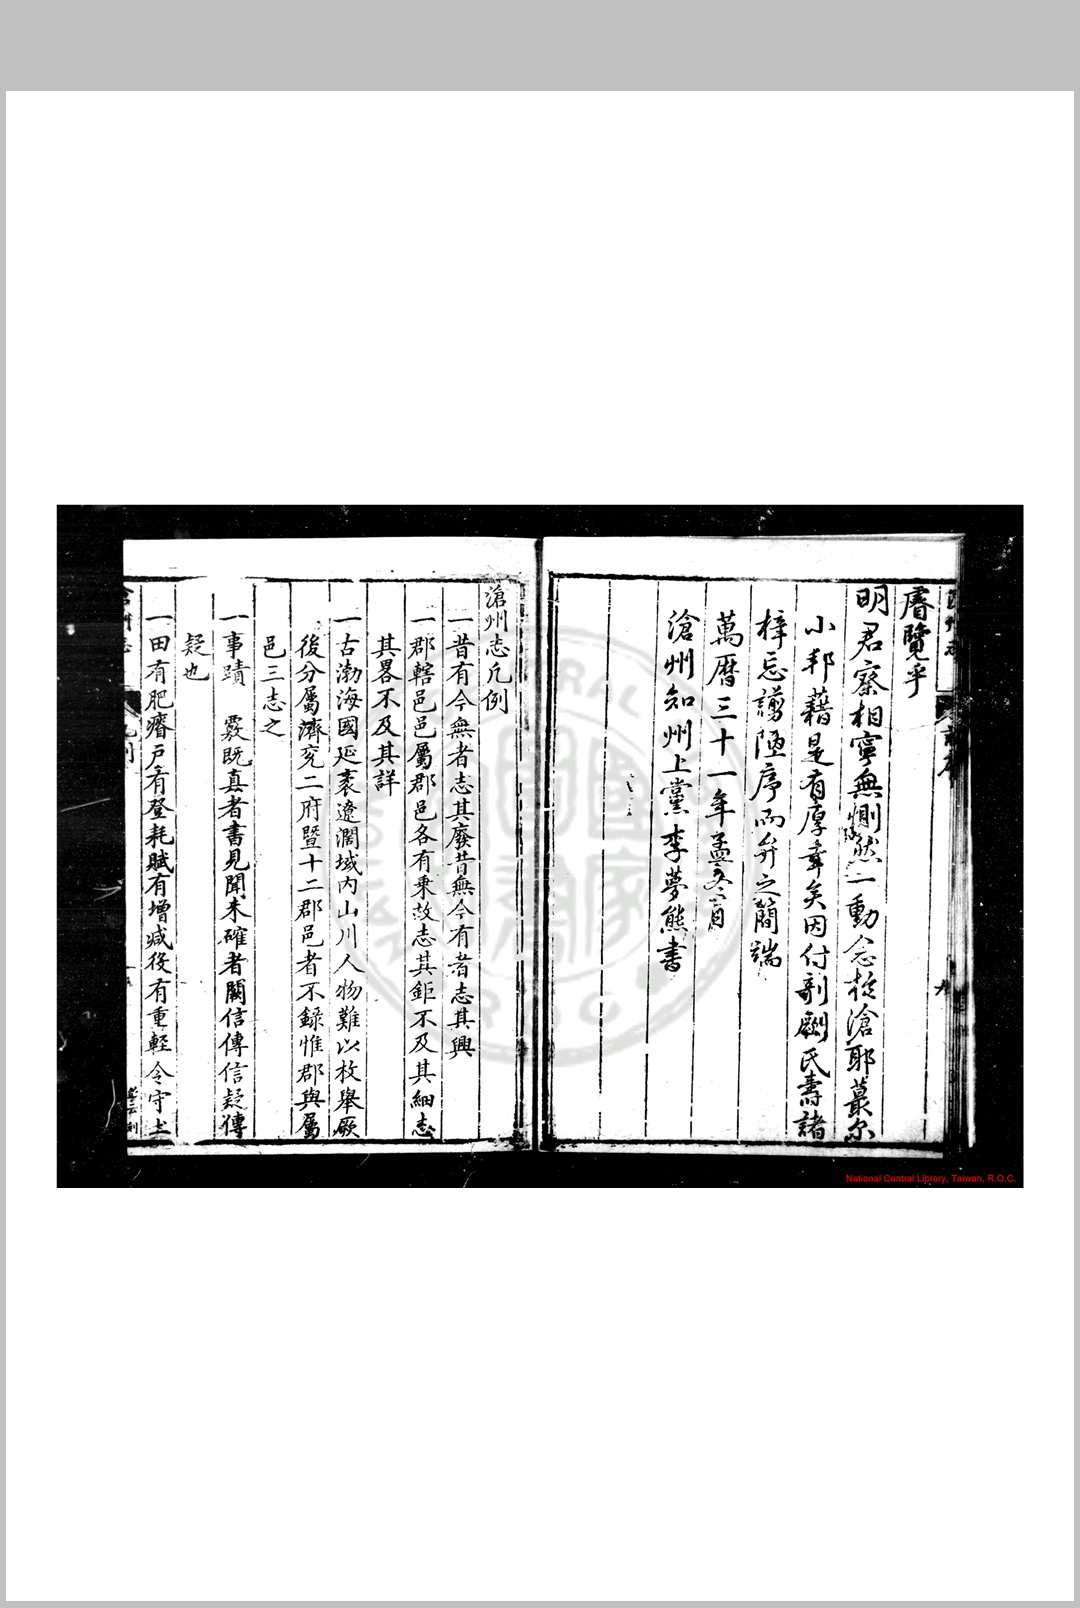 睿覽乎
明君察相寧無惻然一動念於滄耶蕞尔
小邦藉是有厚幸矣因付剞劂氏壽諸
梓忘謭陋序而弁之簡端
萬曆三十一年孟冬月
滄州知州上黨李夢熊書
滄州志凡例
一昔有今無者志其廢昔無今有者志其興
一郡轄邑邑屬郡邑各有乗故志其鉅不及其細志
其畧不及其詳
一古渤海國延袤遼濶域内山川人物難以枚舉厥
後分屬濟兖二府暨十二郡邑者不録惟郡與屬
邑三志之
一事蹟 覈既真者書見聞未確者闕信傳信疑傳
疑也
一田有肥瘠戸有登耗賦有增减役有重輕令守土
National Central Library, Taiwan, R.O.C.